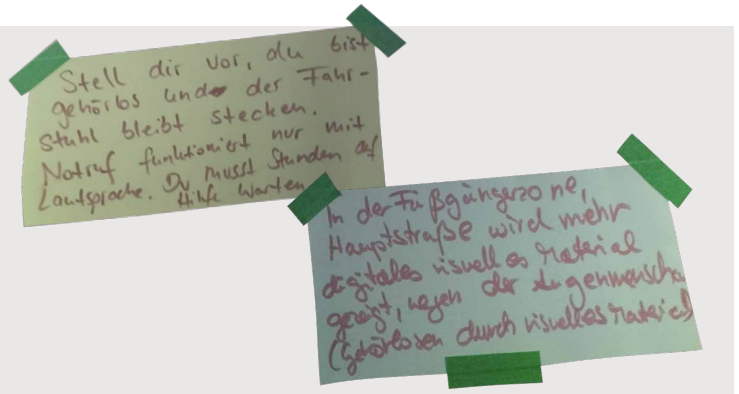 Stell dir vor, du bist
gehörlos und der Fahr-
stuhl bleibt stecken.
Notruf funktioniert nur mit
Lautsprache. Du musst Stunden auf
Hilfe warten
In der Fußgängerzone,
Hauptstraße wird mehr
digitales visuelles Material
gezeigt, wegen der Augenmenschen
(Gehörlosen durch visuelles Material)